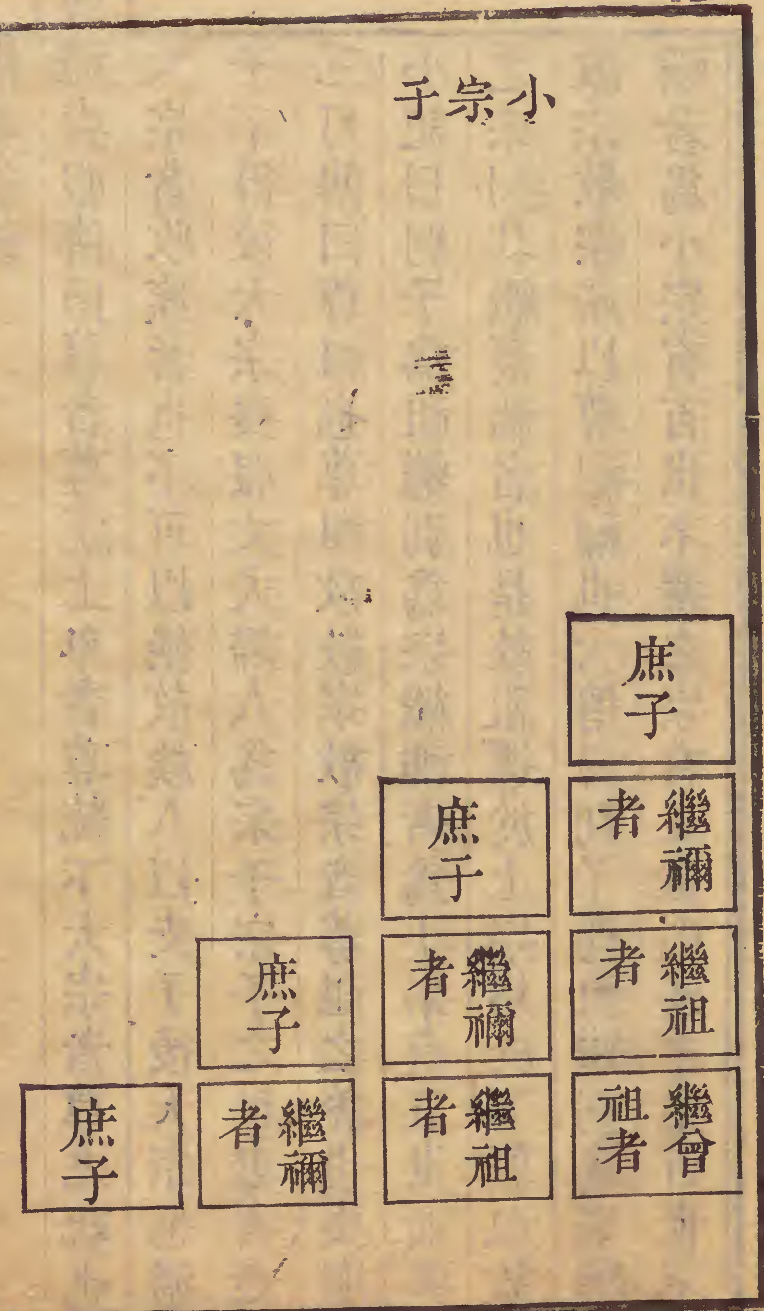 小宗子
庶子
繼禰
者
繼祖
者
繼曾
祖者
庶子
繼禰
者
繼祖
者
庶子
繼禰
者
庶子